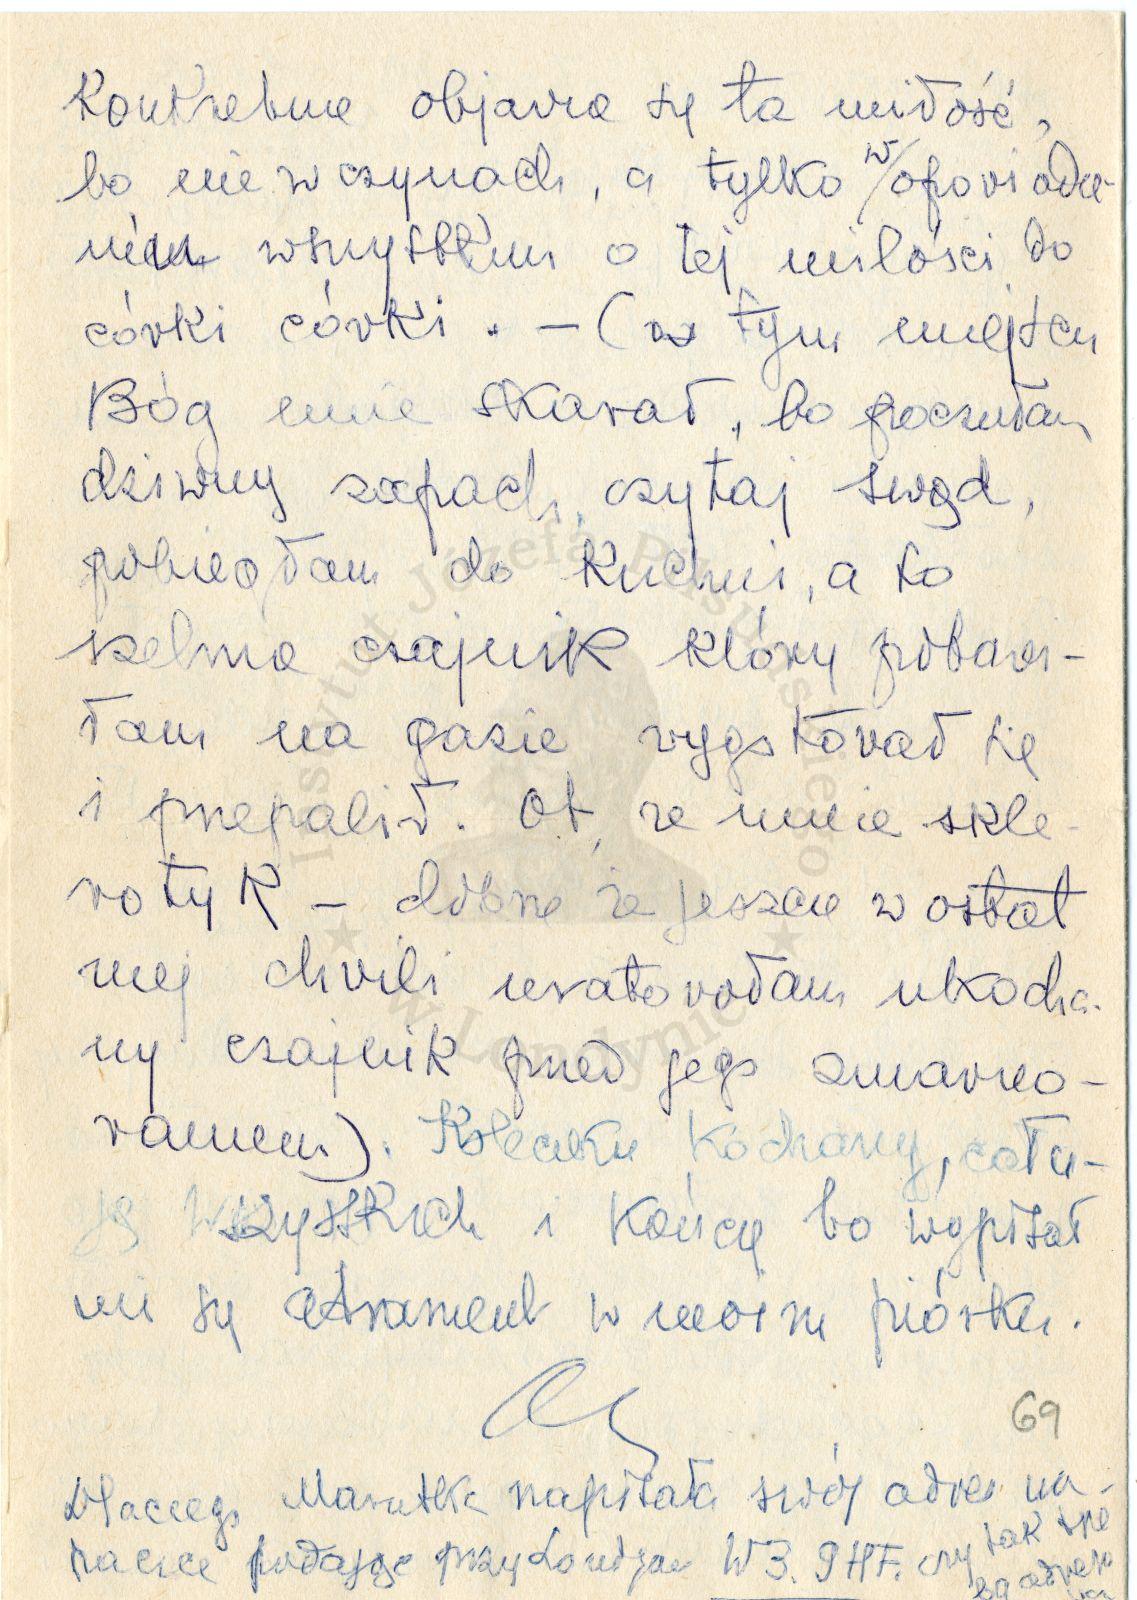 Konkretnie objawia się ta miłość,
bo nie w czynach, a tylko w/opowiada-
niu wszystkim o tej miłości do
córki córki. – (w tym miejscu
Bóg mnie skarał, bo poczułam
dziwny zapach, czytaj swąd,
pobiegłam do kuchni, a to
szelma czajnik który postawi-
łam na gazie wygotował się
i przepalił. Ot, ze mnie skle-
rotyk – dobrze że jeszcze w ostat
niej chwili uratowałam ukocha-
ny czajnik przed jego zmarno-
waniem). Kochany, cału-
ję wszystkich i kończę bo wypisał
mi się atrament w moim piórku.
69
Dlaczego napisała swój adres na
podając przy Londynie W3. 9HF. czy tak